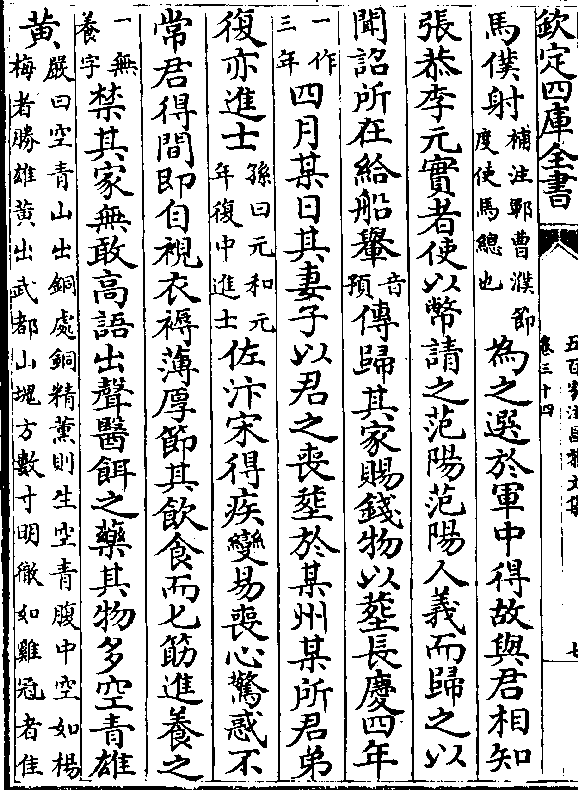 欽定四庫全書
五百家注昌黎文集
卷三十四
七
馬僕射補注鄆曹濮節度使馬總也為之選於軍中得故與君相知
張恭李元實者使以幣請之范陽范陽人義而歸之以
聞詔所在給船轝音預傳歸其家賜錢物以塟長慶四年
一作三年四月某日其妻子以君之喪塟於某州某所君弟
復亦進士孫曰元和元年復中進士佐汴宋得疾變易喪心驚惑不
常君得間即自視衣褥薄厚節其飲食而匕筯進養之
一無養字禁其家無敢高語出聲醫餌之藥其物多空青雄
黃嚴曰空青山出銅處銅精薰則生空青腹中空如楊梅者勝雄黃出武都山塊方數寸明徹如雞冠者佳